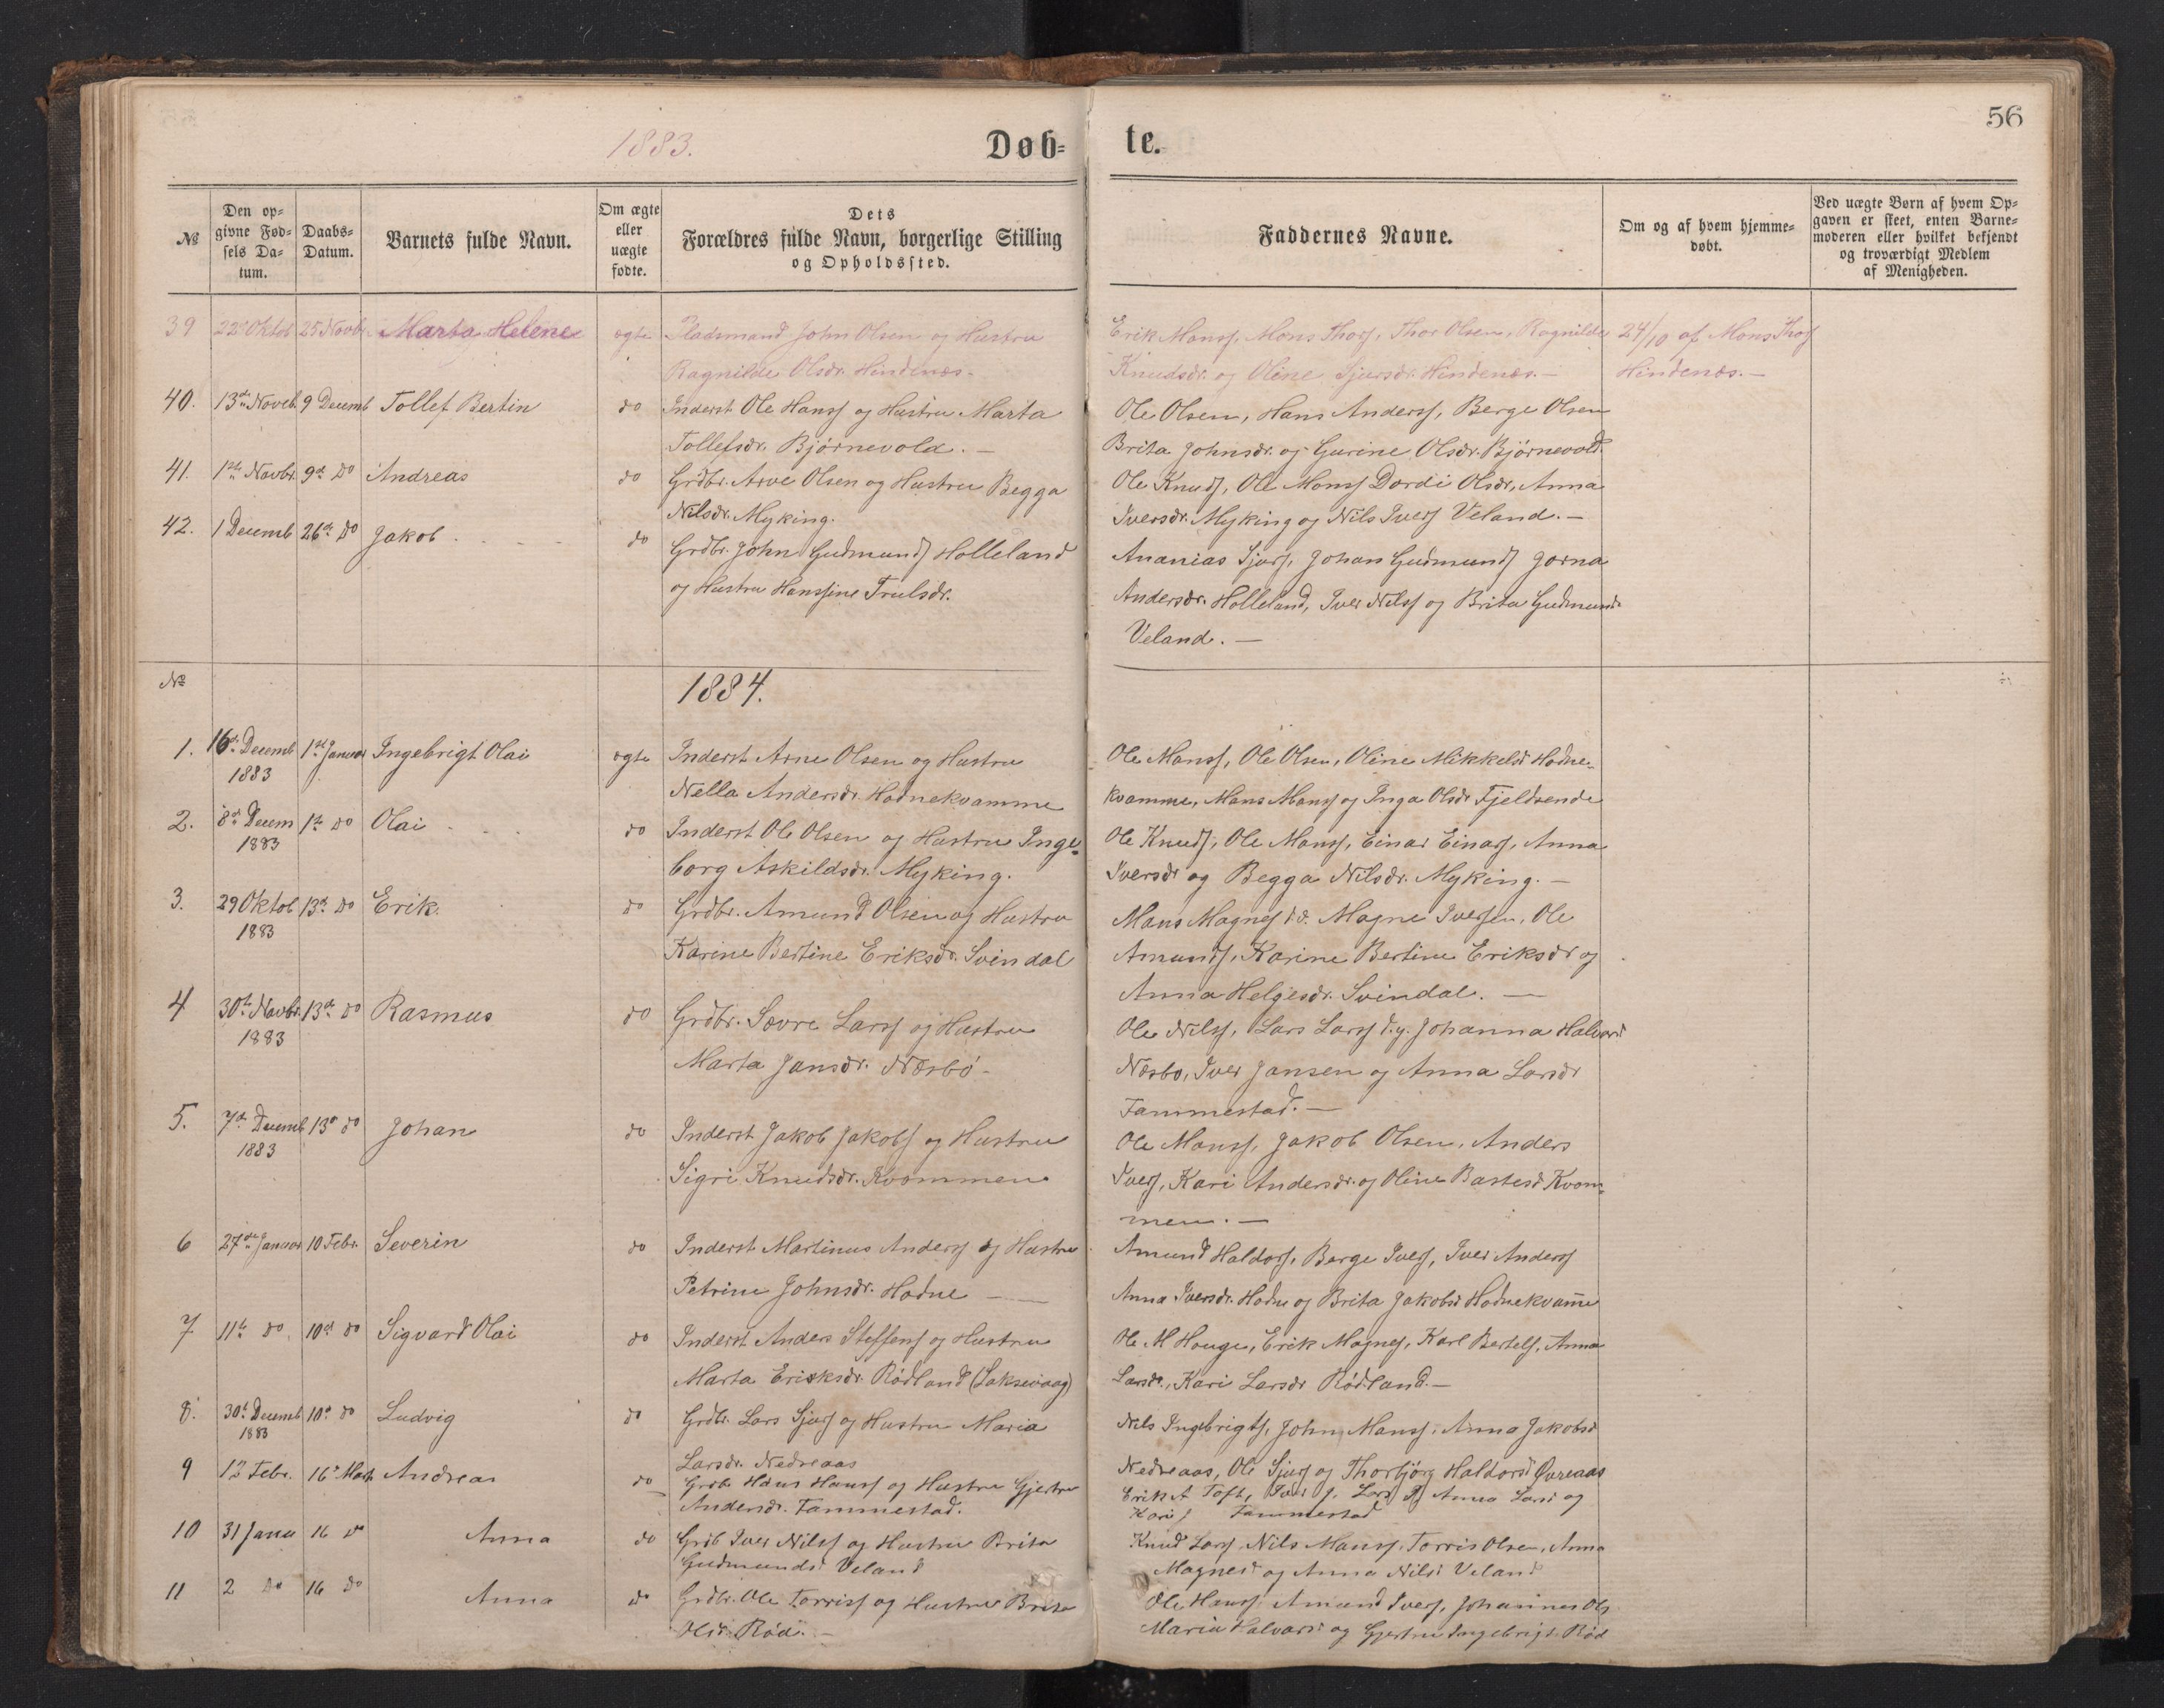 56
1883.
Døb= te.
№
Den op=
givne Fød=
sels Da=
tum.
Daabs=
Datum.
Barnets fulde Navn.
Om ægte
eller
uægte
fødte.
Dets
Forældres fulde Navn, borgerlige Stilling
og Opholdssted.
Faddernes Navne.
Om og af hvem hjemme=
døbt.
Ved uægte Børn af hvem Op=
gaven er skeet, enten Barne=
moderen eller hvilket bekjendt
og troværdigt Medlem
af Menigheden.
39 22 Oktob 25 Novb. Marta Helene ægte Pladsmand John Olsen og Hustru
Ragnilde Olsdr. Hindenæs.
Erik Monsf, Mons Thorf, Thor Olsen, Ragnilde
Knudsdr. og Oline Sjursdr. Hindenæs. —
24/10 af Mons Thorf
Hindenæs. —
40. 13de Noveb. 9 Decemb Tollef Bertin do Inderst Ole Hansf og Hustru Marta
Tollefsdr. Bjørnevold. —
Ole Olsen, Hans Andersf, Berge Olsen
Brita Johnsdr. og Gurine Olsdr. Bjørnevold.
41. 1ste Novbr. 9de do Andreas do Grdbr. Arve Olsen og Hustru Begga
Nilsdr. Myking.
Ole Knudf, Ole Monsf Dordi Olsdr, Anna
Iversdr. Myking og Nils Iverf Veland. —
42. 1 Decemb 26de do Jakob do Grdbr. John Gudmundf Holleland
og Hustru Hansine Trulsdr.
Ananias Sjurf, Johan Gudmundf Gorna
Andersdr. Holleland, Iver Nilsf og Brita Gudmunds
Veland. —
№
1884.
1. 16de Decemb 1ste Januar Ingebrigt Olai ægte Inderst Arne Olsen og Hustru
1883
Nella Andersdr. Hodnekvamme
Ole Monsf, Ole Olsen, Oline Mikkelsd Hodne=
kvamme, Mons Monsf og Inga Olsdr Fjeldsende
2. 8de Decem 1ste do Olai do Inderst Ole Olsen og Hustru Inge=
1883
borg Askildsdr. Myking.
Ole Knudf, Ole Monsf, Einar Einarf, Anna
Iversdr og Begga Nilsdr. Myking. —
3. 29 Oktob 13de do Erik do Grdbr. Amund Olsen og Hustru
1883
Karine Bertine Eriksdr. Svindal
Mons Magnef Magne Iversen, Ole
Amundf, Karine Bertine Eriksdr og
Anna Helgesdr. Svindal. —
4 30te Novbr. 13de do Rasmus do Grdbr. Sævre Larsf og Hustru
1883
Marta Jansdr. Næsbø.
Ole Nilsf, Lars Larsf d.y. Johanna Halvord
Næsbø, Iver Jansen og Anna Larsdr
Tammestad. —
5. 7de Decemb 13de do Johan do Inderst Jakob Jakobf og Hustru
1883
Sigri Knudsdr. Kvammen
Ole Monsf, Jakob Olsen, Anders
Iverf, Kari Andersdr. og Oline Bastesd Kvam=
men. —
6 27de Januar 10 Febr. Severin do Inderst Martinus Andersf og Hustru
Petrine Johnsdr. Hodne —
Amund Haldorf, Berge Iverf, Iver Andersf
Anna Iversdr. Hodne og Brita Jakobsd Hodnekvamme
7 11te do 10de do Sigvard Olai do Inderst Anders Steffensf og Hustru
Marta Eriksdr. Rødland (Laksevaag)
Ole M Houge, Erik Magnef, Karl Bertelsf, Anna
Larsdr., Kari Larsdr Rødland. —
8. 30te Decemb 10de do Ludvig do Grdbr. Lars Sjurf og Hustru Maria
1883
Larsdr. Nedreaas
Nils Ingebrigtf, John Monsf, Anna Jakobsd
Nedreaas, Ole Sjurf og Thorbjørg Haldorsd Øvreaas
9 12 Febr. 16 Marts Andreas do Grdb. Hans Hansf og Hustru Gjertru
Andersdr. Tammestad.
Erik A Toft, Iver J. Larsf Anna Larsd og
Kari Tammestad
10 31 Janu 16 do Anna do Grdb Iver Nilsf og Hustru Brita
Gudmundsd Veland
Knud Larsf, Nils Monsf, Torris Olsen, Anna
Magnesd og Anna Nilsd Veland
11 2 do 16 do Anna do Grdbr. Ole Torrisf og Hustru Brita
Olsd. Rød. —
Ole Hansf Amund Iverf, Johannes Olsf
Maria Halvorsd og Gjertru Ingebrigt. Rød